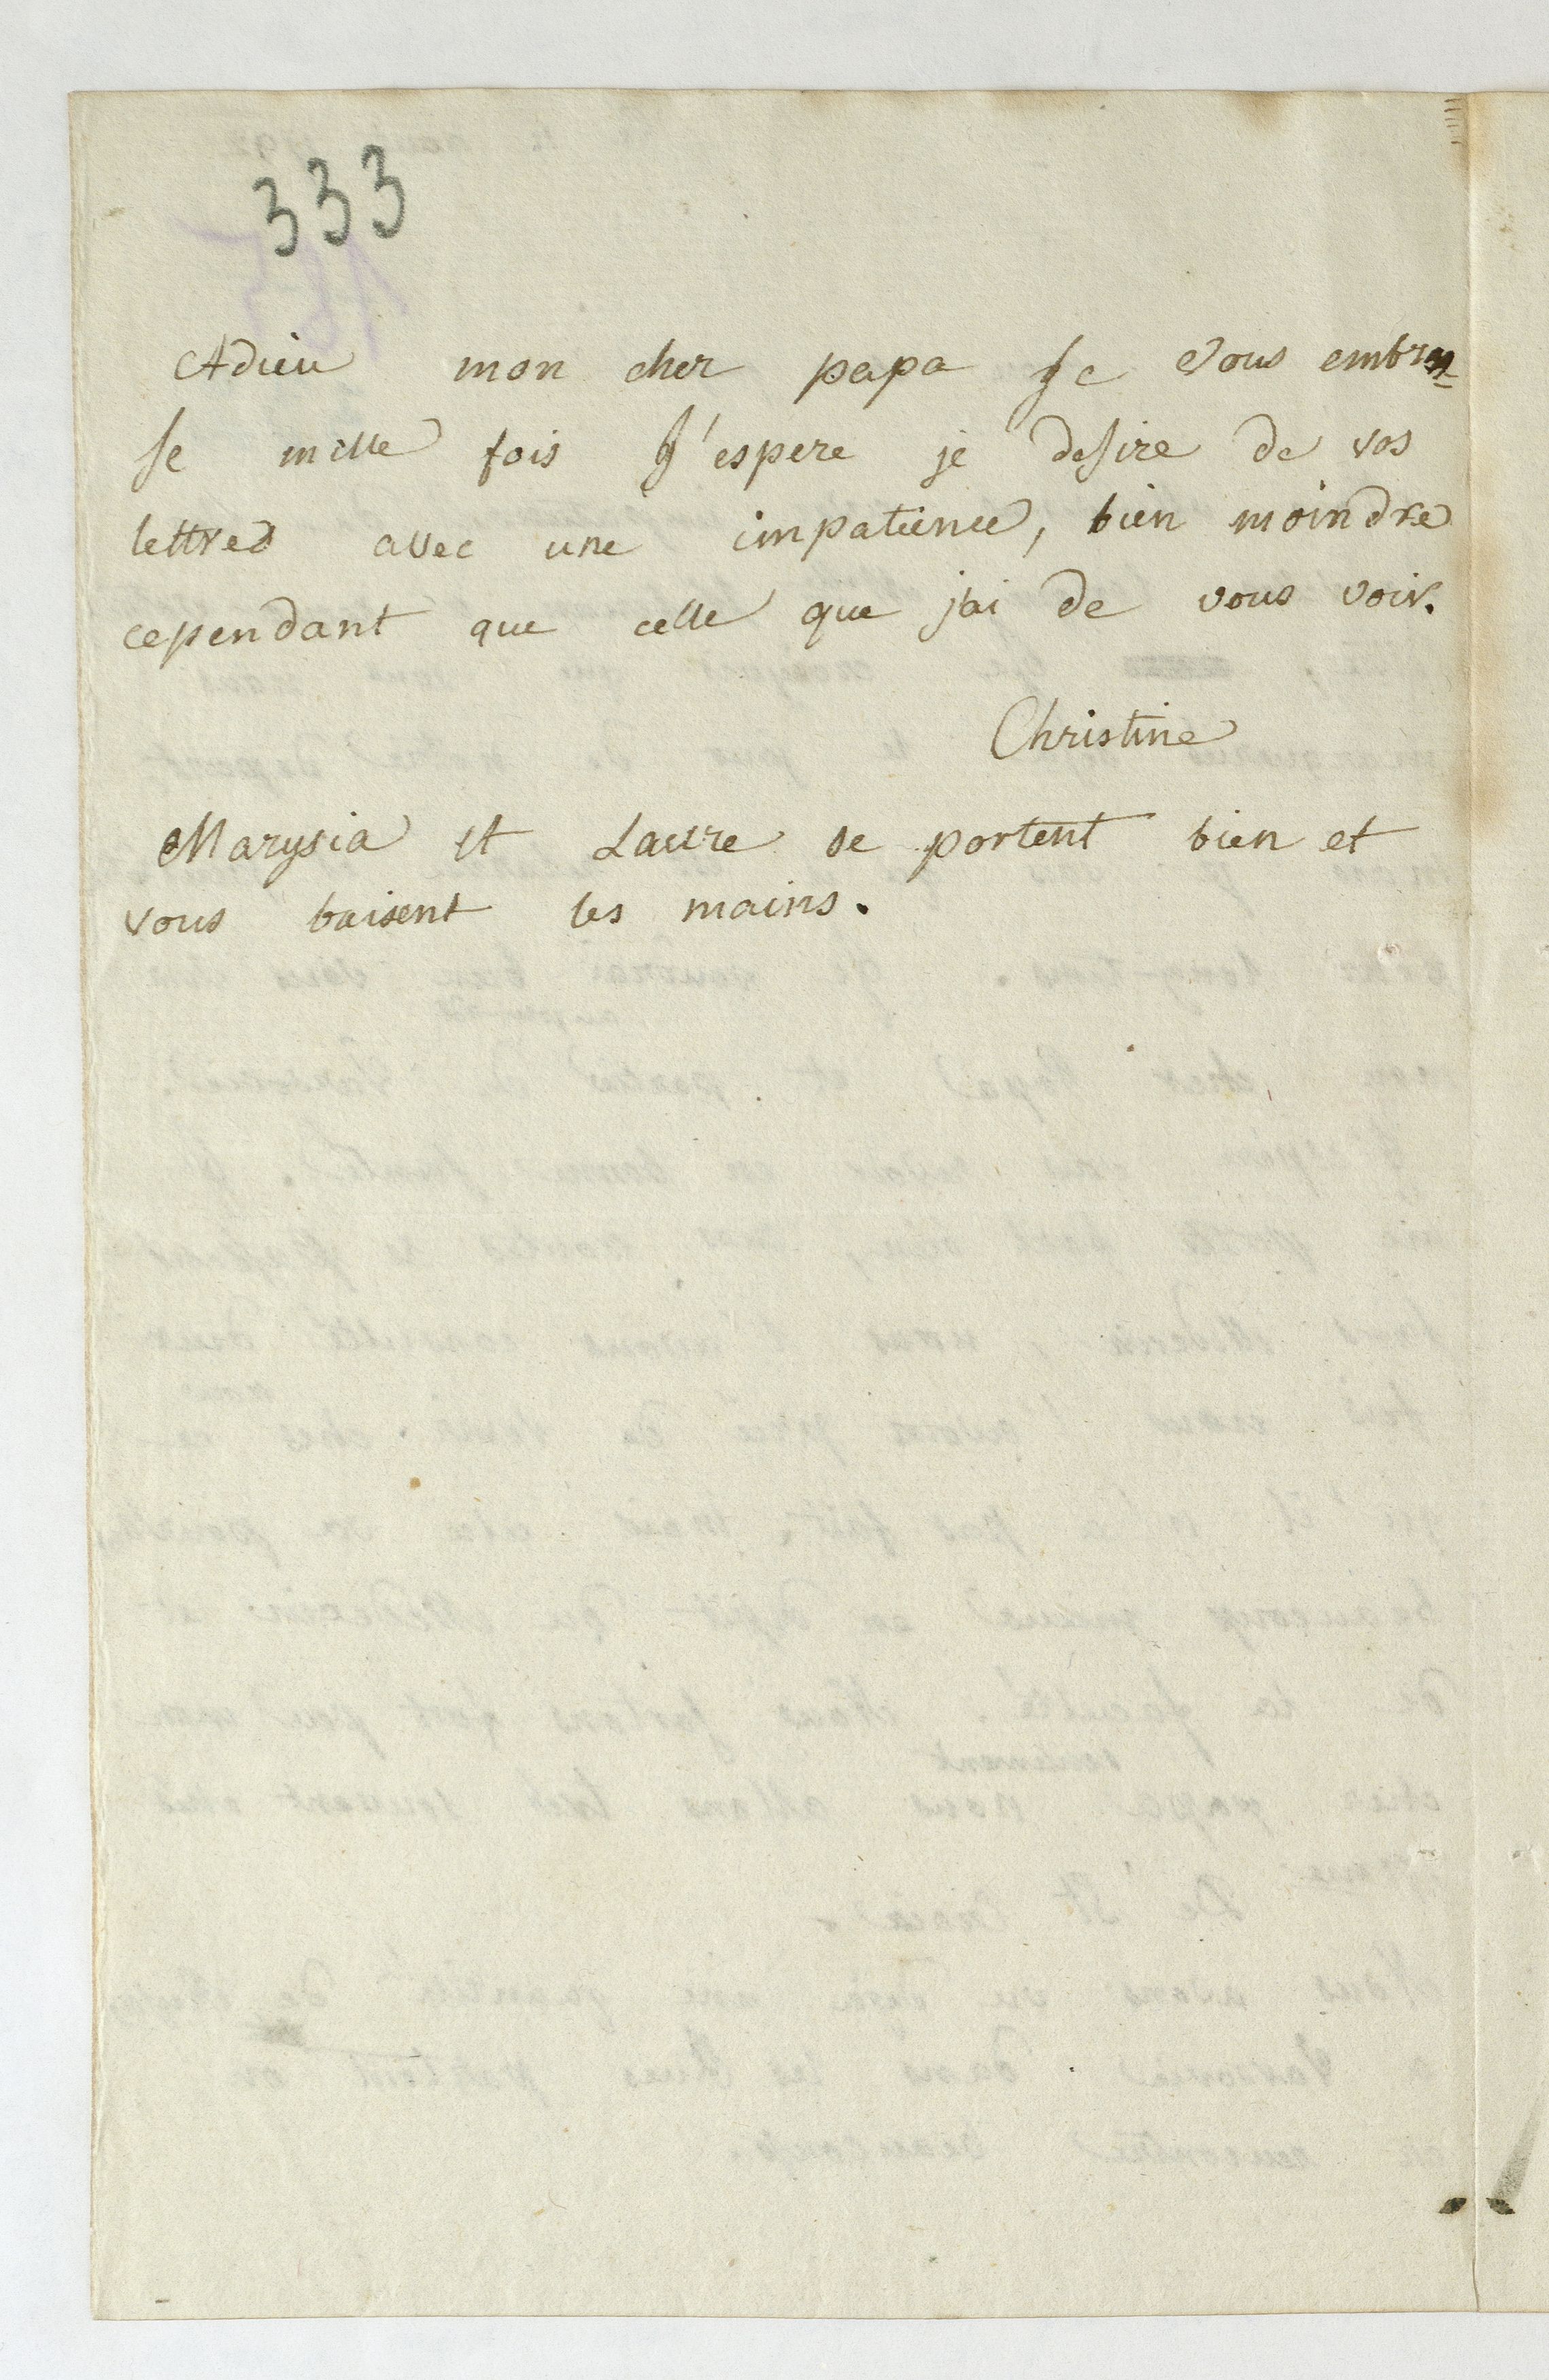 333
Adieu mon cher papa Je vous embras-
se mille fois J'espere je desire de vos
lettres avec une impatience, bien moindre
cependant que celle que j'ai de vous voir.
Christine
Marysia et Laure se portent bien et
vous baisent les mains.